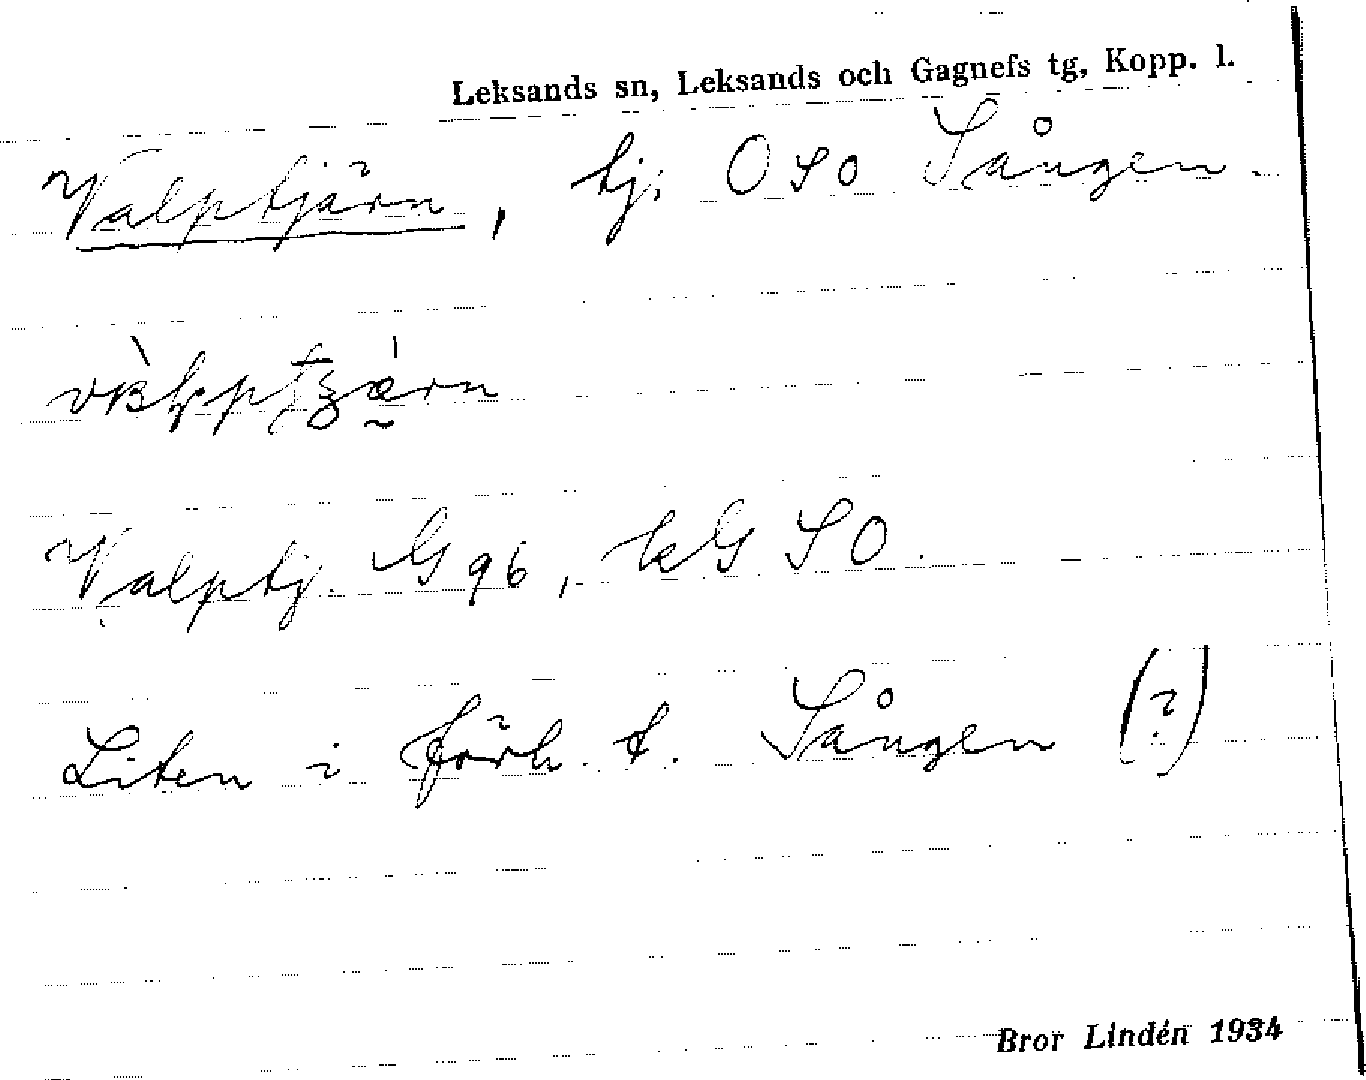 Leksands sn, Leksands och Gagnefs tg, Kopp. l.
Valptjärn, tj. OSO Sången.
Valptj. G 96, kG SO.
Liten i förh. t. Sången (?)
Bror Lindén 1934